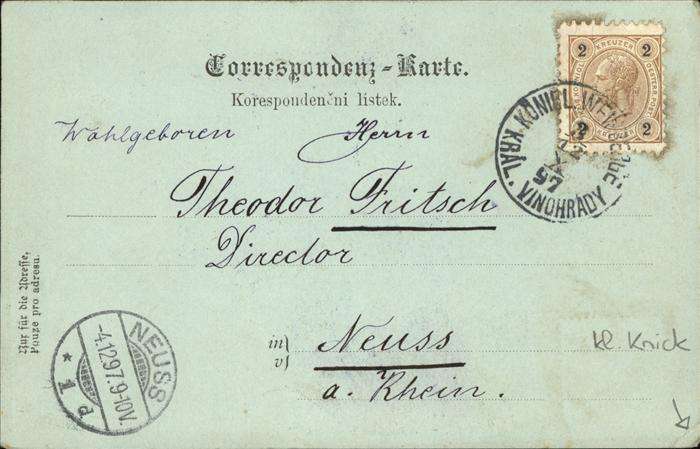 Correspondenz-Karte.
Korespondenční lístek.
2 KREUZER 2
2 2
KÖNIGL. WEINBERGE
12 97
KRÁL. VINOHRADY
Wohlgeboren Herrn
Theodor Fritsch
Director
in
v
Neuss
a. Rhein.
kl. Knick
Nur für die Adresse.
Pouze pro adresu.
NEUSS
4.12.97.9-10V.
* 1 a